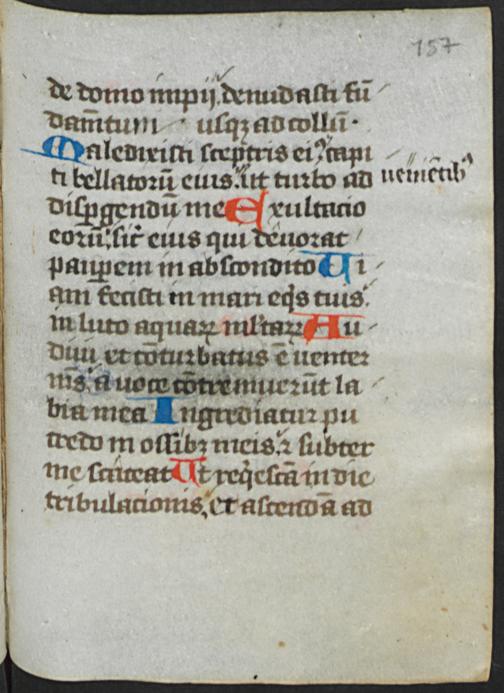 157
de domo impij denudasti fū
dam̄tum usqꝫ ad collū.
Maledixisti sceptris eiꝰ capi
ti bellatorū eius. ut turbo ad ueniētibꝰ
dispgendū me Exultacio
eorū sic̄ eius qui deuorat
paupem in abscondito Ui
am fecisti in mari eqs tuis.
in luto aquaꝝ mltaꝝ Au
diui et cōturbatus ē uenter
mꝰs. a uoce cōtremuerūt la
bia mea Ingrediatur pu
tredo in ossibꝫ meis. ⁊ subter
me scateat Ut reqescā in die
tribulacionis, et ascendā ad